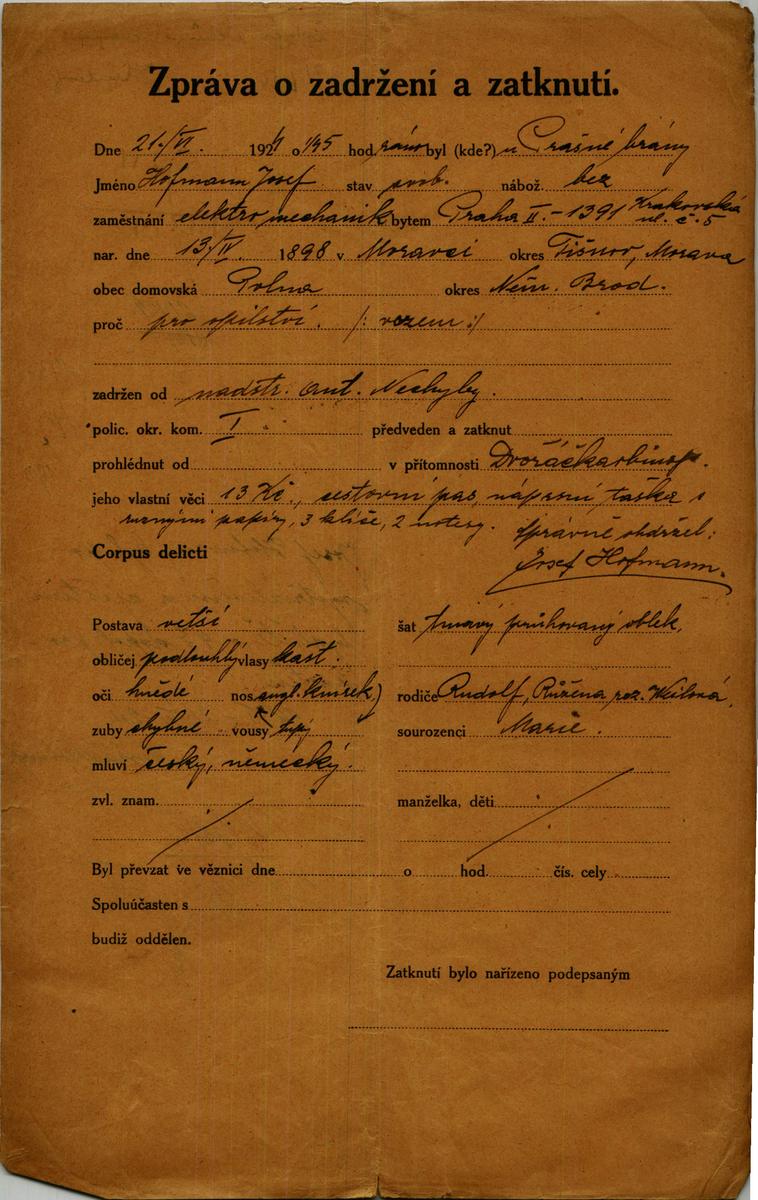 Zpráva o zadržení a zatknutí.
Dne 21./VI. 192 o 1/45 hod. ráno byl (kde?) u Prašné brány
Jméno Hofmann Josef stav svob. nábož. bez
zaměstnání elektromechanik bytem Praha II. - 1391 Krakovská ul. č. 5
nar. dne 13/IV. 1898 v Moravci okres Tišnov, Morava
obec domovská Polna okres Něm. Brod.
proč pro opilství. /: vozem :/
zadržen od nadstr. Ant. Nechyby.
polic. okr. kom. I předveden a zatknut
prohlédnut od v přítomnosti
jeho vlastní věci 13 Kč, cestovní pas, náprsní taška s
ruznými papíry, 3 klíče, 2 notesy. Správně obdržel:
Corpus delicti Josef Hofmann.
Postava vetší šat tmavý pruhovaný oblek.
obličej podlouhlý vlasy kašt.
oči hnědé nos angl. knírek) rodiče Rudolf, Růžena roz. Weilová.
zuby chybné vousy tupý sourozenci Marie.
mluví český, německý.
zvl. znam. manželka, děti
Byl převzat ve věznici dne o hod. čís. cely
Spoluúčasten s
budiž oddělen.
Zatknutí bylo nařízeno podepsaným